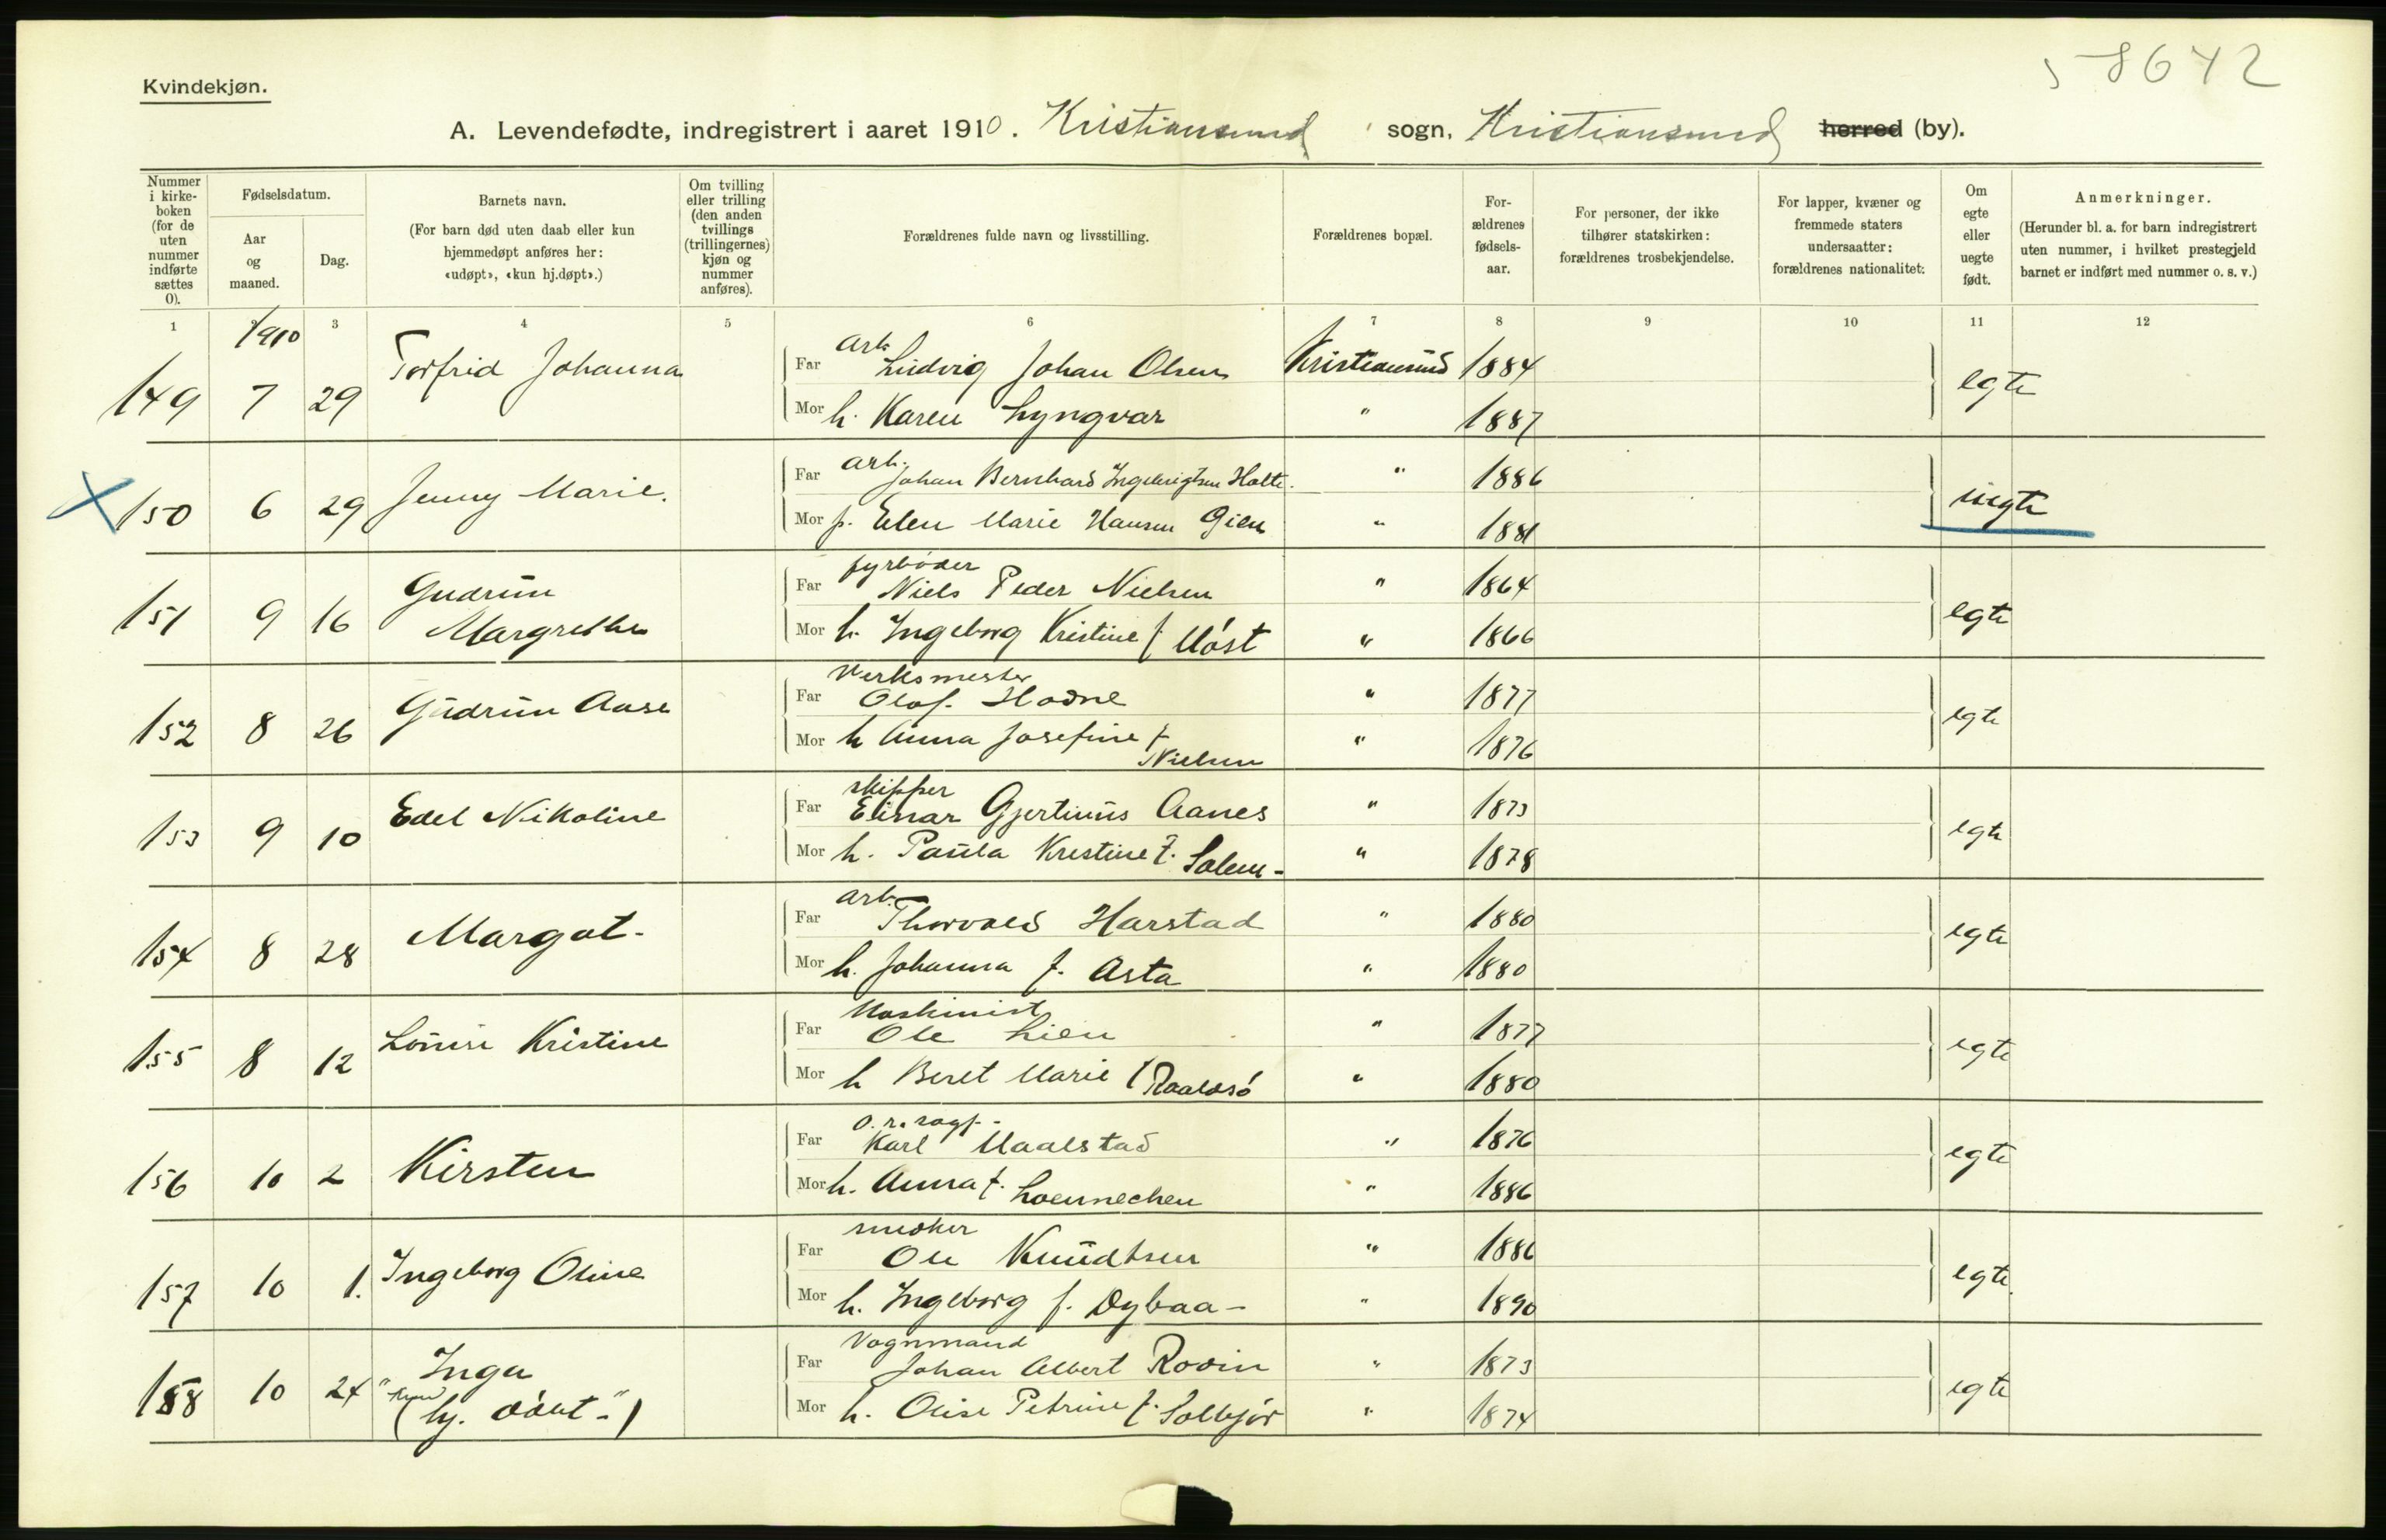 58642
Kvindekjøn.
A. Levendefødte, indregistrert i aaret 1910. Kristiansund sogn, Kristiansund herred (by).
Nummer i kirke-boken (for de uten nummer indførte sættes 0).
Fødselsdatum.
Aar og maaned.
Dag.
Barnets navn.
(For barn død uten daab eller kun hjemmedøpt anføres her: «udøpt», «kun hj.døpt».)
Om tvilling eller trilling (den anden tvillings (trillingernes) kjøn og nummer anføres).
Forældrenes fulde navn og livsstilling.
Forældrenes bopæl.
For-ældrenes fødsels-aar.
For personer, der ikke tilhører statskirken: forældrenes trosbekjendelse.
For lapper, kvæner og fremmede staters undersaatter: forældrenes nationalitet:
Om egte eller uegte født.
Anmerkninger.
(Herunder bl. a. for barn indregistrert uten nummer, i hvilket prestegjeld barnet er indført med nummer o. s. v.)
1 3 4 5 6 7 8 9 10 11 12
1910
149 7 29 Torfrid Johanna Far arb. Ludvig Johan Olsen Kristiansund 1884 egte
Mor h. Karen Lyngvar " 1887
X 150 6 29 Jenny Marie. Far arb. Johan Bernhard Ingebrigtsen Holte. " 1886 uegte
Mor p. Elen Marie Hansen Gien " 1881
151 9 16 Gudrun Margrethe Far fyrbøder Niels Peder Nielsen " 1864 egte
Mor h. Ingeborg Kristine f. Møst " 1866
152 8 26 Gudrun Aase Far Verksmester Olaf Hodne " 1877 egte
Mor h Anna Josefine f Nielsen " 1876
153 9 10 Edel Nikoline Far skipper Einar Gjertinus Aanes " 1873 egte
Mor h. Paula Kristine f. Solem - " 1878
154 8 28 Margot - Far arb. Thorvald Harstad " 1880 egte
Mor h. Johanna f. Asta " 1880
155 8 12 Louise Kristine Far Maskinist Ole Lien " 1877 egte
Mor h Beret Marie f Roaldsø " 1880
156 10 2 Kirsten Far o.r.sagf. Karl Maalstad " 1876 egte
Mor h. Anna f. Loennechen " 1886
157 10 1. Ingeborg Oline Far snedker Ole Knudtsen " 1886 egte.
Mor h. Ingeborg f. Dybaa - " 1890
158 10 24 Inga Far Vognmand Johan Albert Rovin " 1873 egte
("kun hj. døbt -") Mor h. Olise Petrine f. Solbjør " 1874